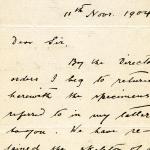 11th Novr. 1904
Dear Sir,
By the direct
orders I beg to return
herewith the specimens
refered to in my letter
to you. We have re-
joined the skeleton of